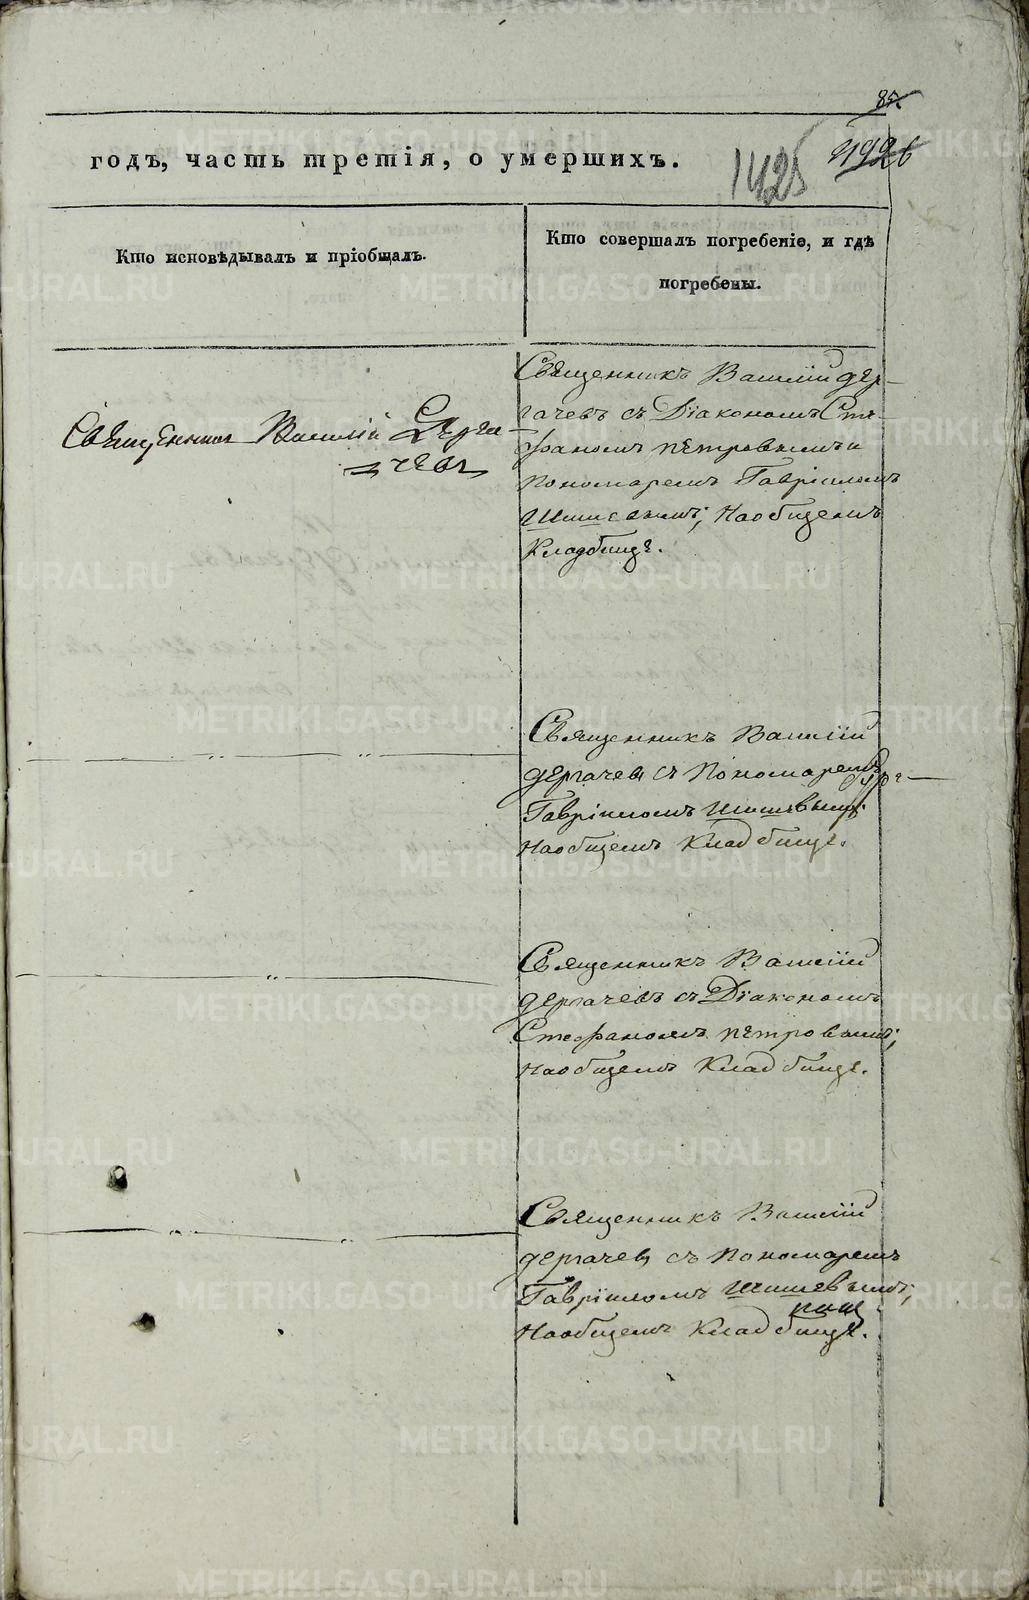 85.
годъ, часть третія, о умершихъ.
1425
Кто исповѣдывалъ и пріобщалъ.
Кто совершалъ погребеніе, и гдѣ
погребены.
Священникъ Василій Дерга
чевъ
Священникъ Василій дер-
гачевъ съ Діакономъ Сте-
фаномъ петровымъ и
пономаремъ Гавріиломъ
Шишевымъ; На общемъ
Кладбище.
Священникъ Василій
дергачевъ съ пономаремъ
Гавріиломъ Шишевымъ;
На общемъ Кладбище.
Священникъ Василій
дергачевъ съ Діакономъ
Стефаномъ петровымъ;
На общемъ Кладбище.
Священникъ Василій
дергачевъ съ пономаремъ
Гавріиломъ Шишевымъ;
На общемъ Кладбище.
METRIKI.GASO-URAL.RU